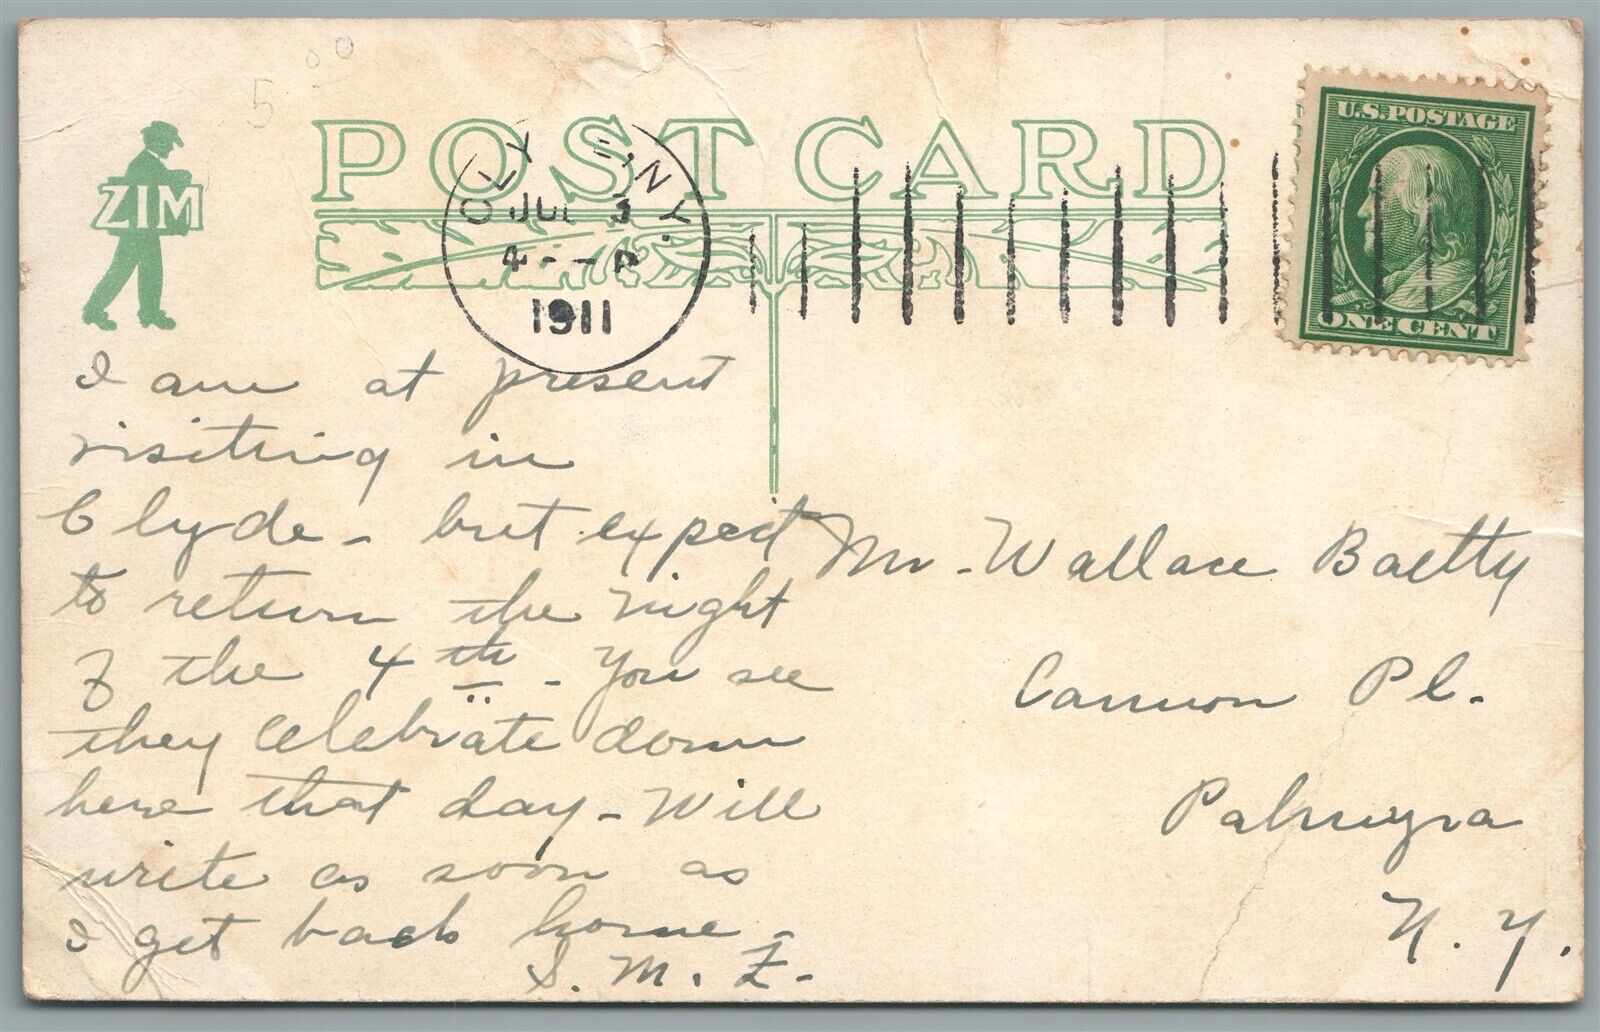 5 00
POST CARD
ZIM
CLYDE, N.Y.
JUL 3
4 - P
1911
U.S. POSTAGE
ONE CENT
I am at present
visiting in
Clyde - but expect
to return the night
of the 4th - You see
they celebrate down
here that day - Will
write as soon as
I get back home -
S. M. Z. -
Mr - Wallace Baetty
Cannon Pl.
Palmyra
N. Y.